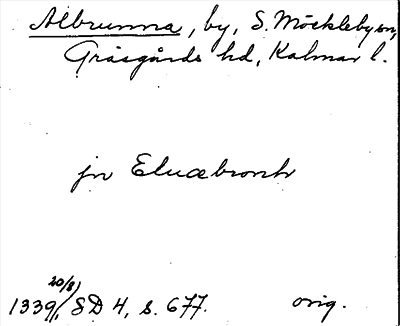 Albrunna, by, S. Möckleby sn,
Gräsgårds hd, Kalmar l.
jn Eluæbronh
20/8
1339, SD 4, s. 677. orig.